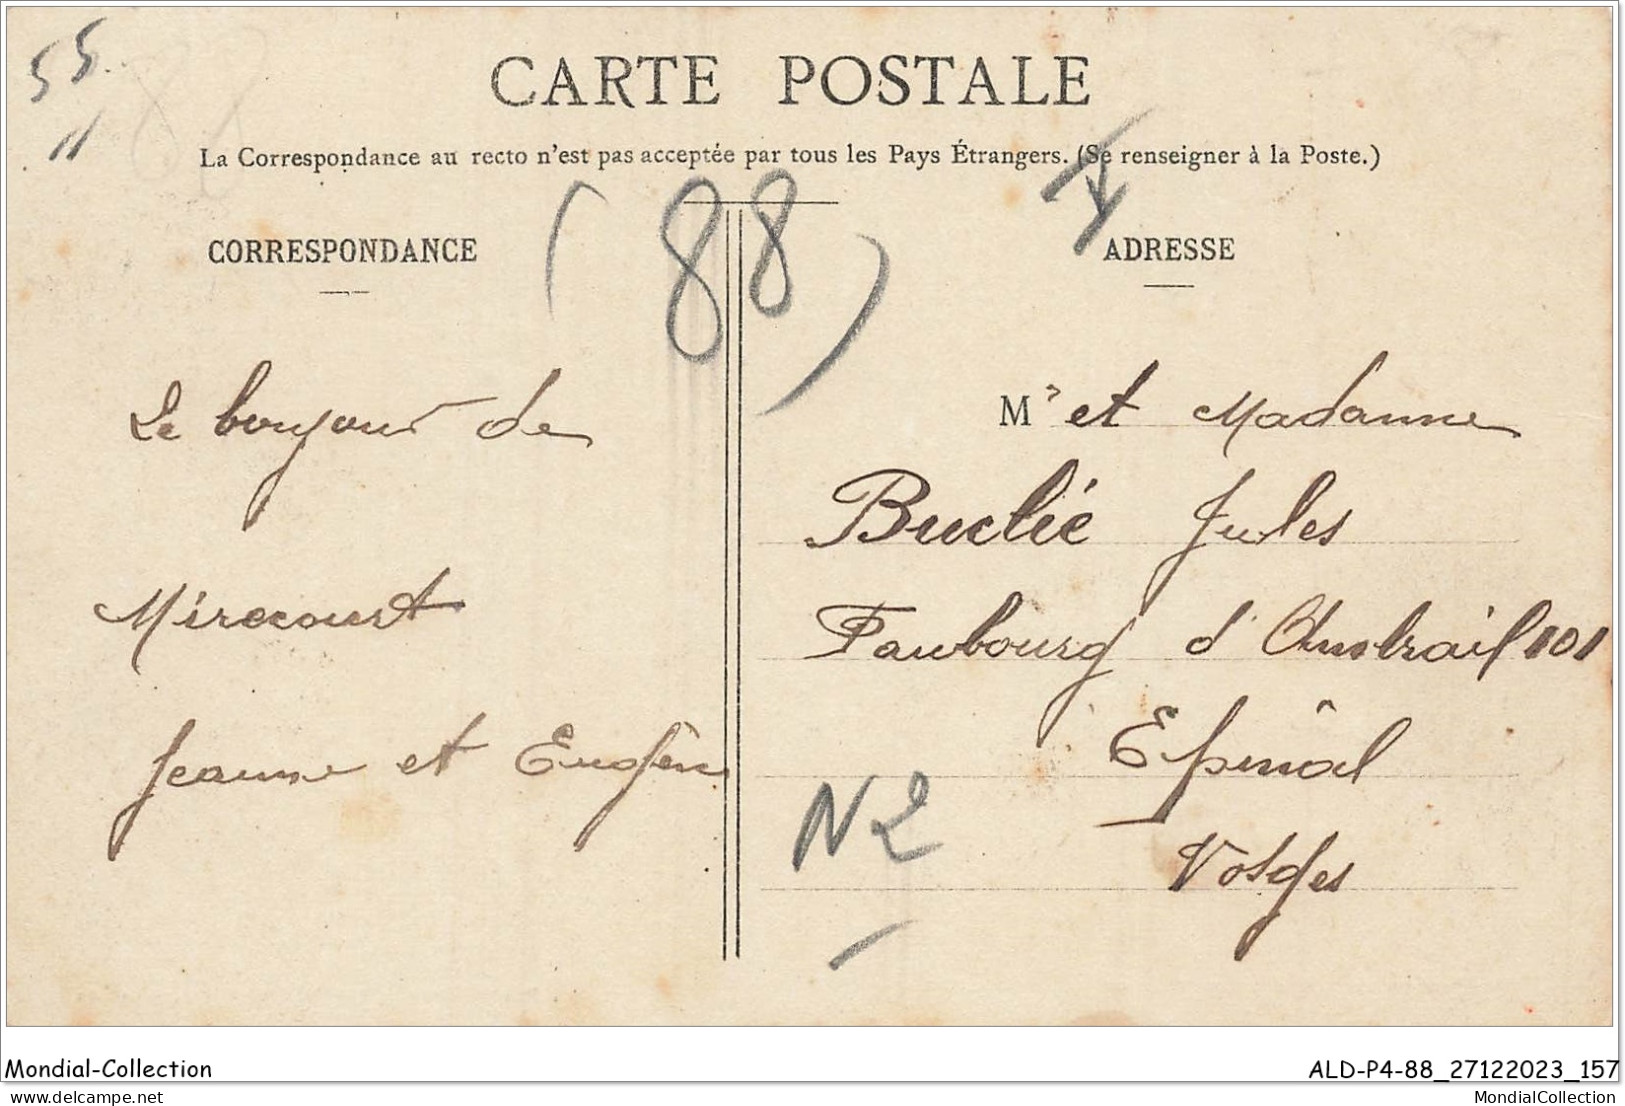 55
11
88
CARTE POSTALE
La Correspondance au recto n'est pas acceptée par tous les Pays Étrangers. (Se renseigner à la Poste.)
(88)
CORRESPONDANCE
Le bonjour de
Mirecourt
Jeanne et Eugène
ADRESSE
Mr et Madame
Buclié Jules
Faubourg d'Ambrail 101
Epinal
Vosges
N2
Mondial-Collection
ALD-P4-88_27122023_157
delcampe.net
MondialCollection